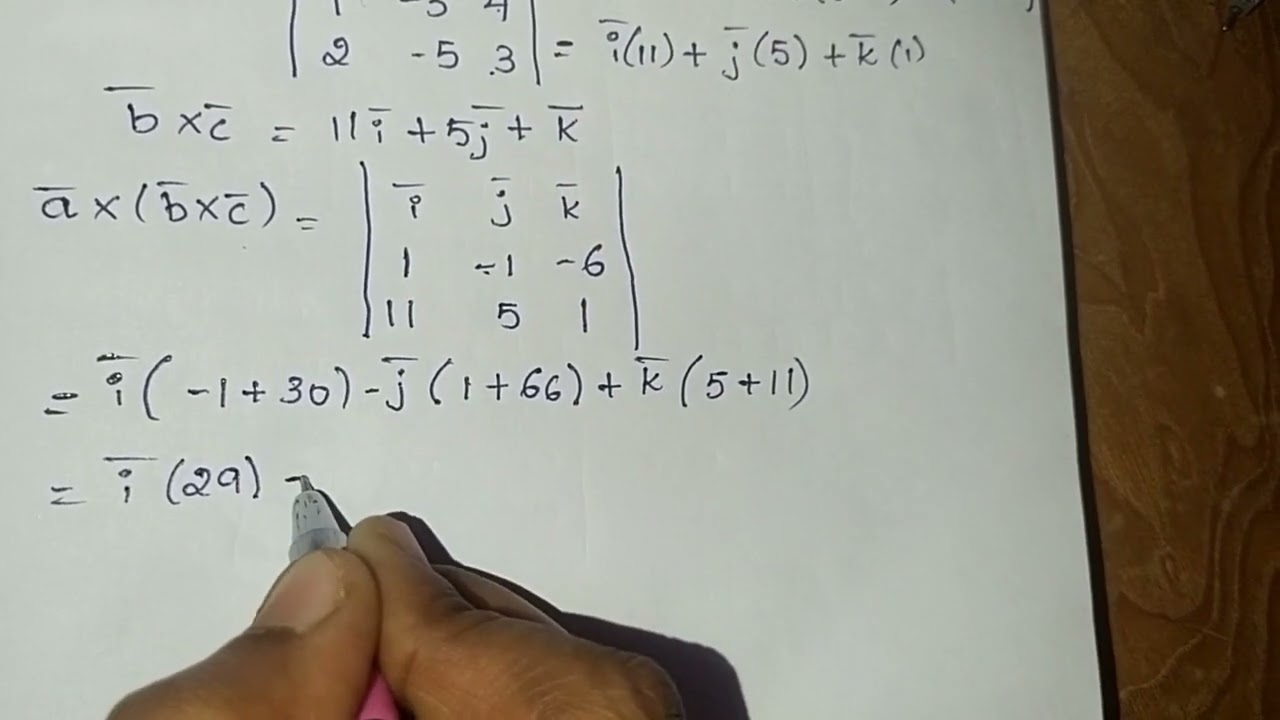 1 -3 4
2 -5 3 = i̅(11) + j̅(5) + k̅(1)
b̅ × c̅ = 11i̅ + 5j̅ + k̅
a̅ × (b̅ × c̅) = | i̅ j̅ k̅ |
1 -1 -6
11 5 1
= i̅(-1+30) - j̅(1+66) + k̅(5+11)
= i̅(29) -